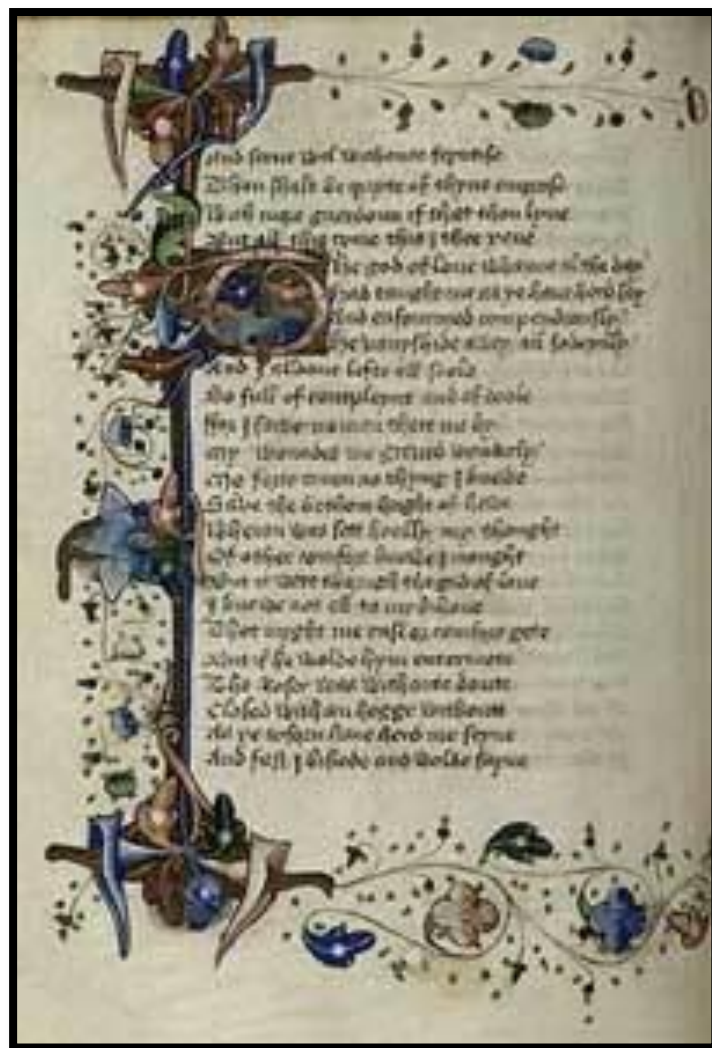 And serve wel withoute feyntise
Than shalt be quyte of thyne emprise
With more guerdoun if that thou lyve
But all this tyme this I thee yeve
The god of love whanne al the day
Had taught me as ye have herd say
And enfourmed compendiously
He vanyshide awey all sodeynly
And I alloone lefte all soole
So full of compleynt and of doole
For I sawe no man there me by
My woundes me greved wondirly
Me forto curen no thyng I knewe
Save the bothom bright of hewe
Wheron was sett hoolly my thought
Of other comfort knewe I nought
But it were thrugh the god of love
I knewe not ell to my bihove
That myght me ease or comfort gete
But if he wolde hym entermete
The Roser was withoute doute
Closed with an hegge withoute
As ye toforn have herd me seyne
And fast I bisiede and wolde fayne